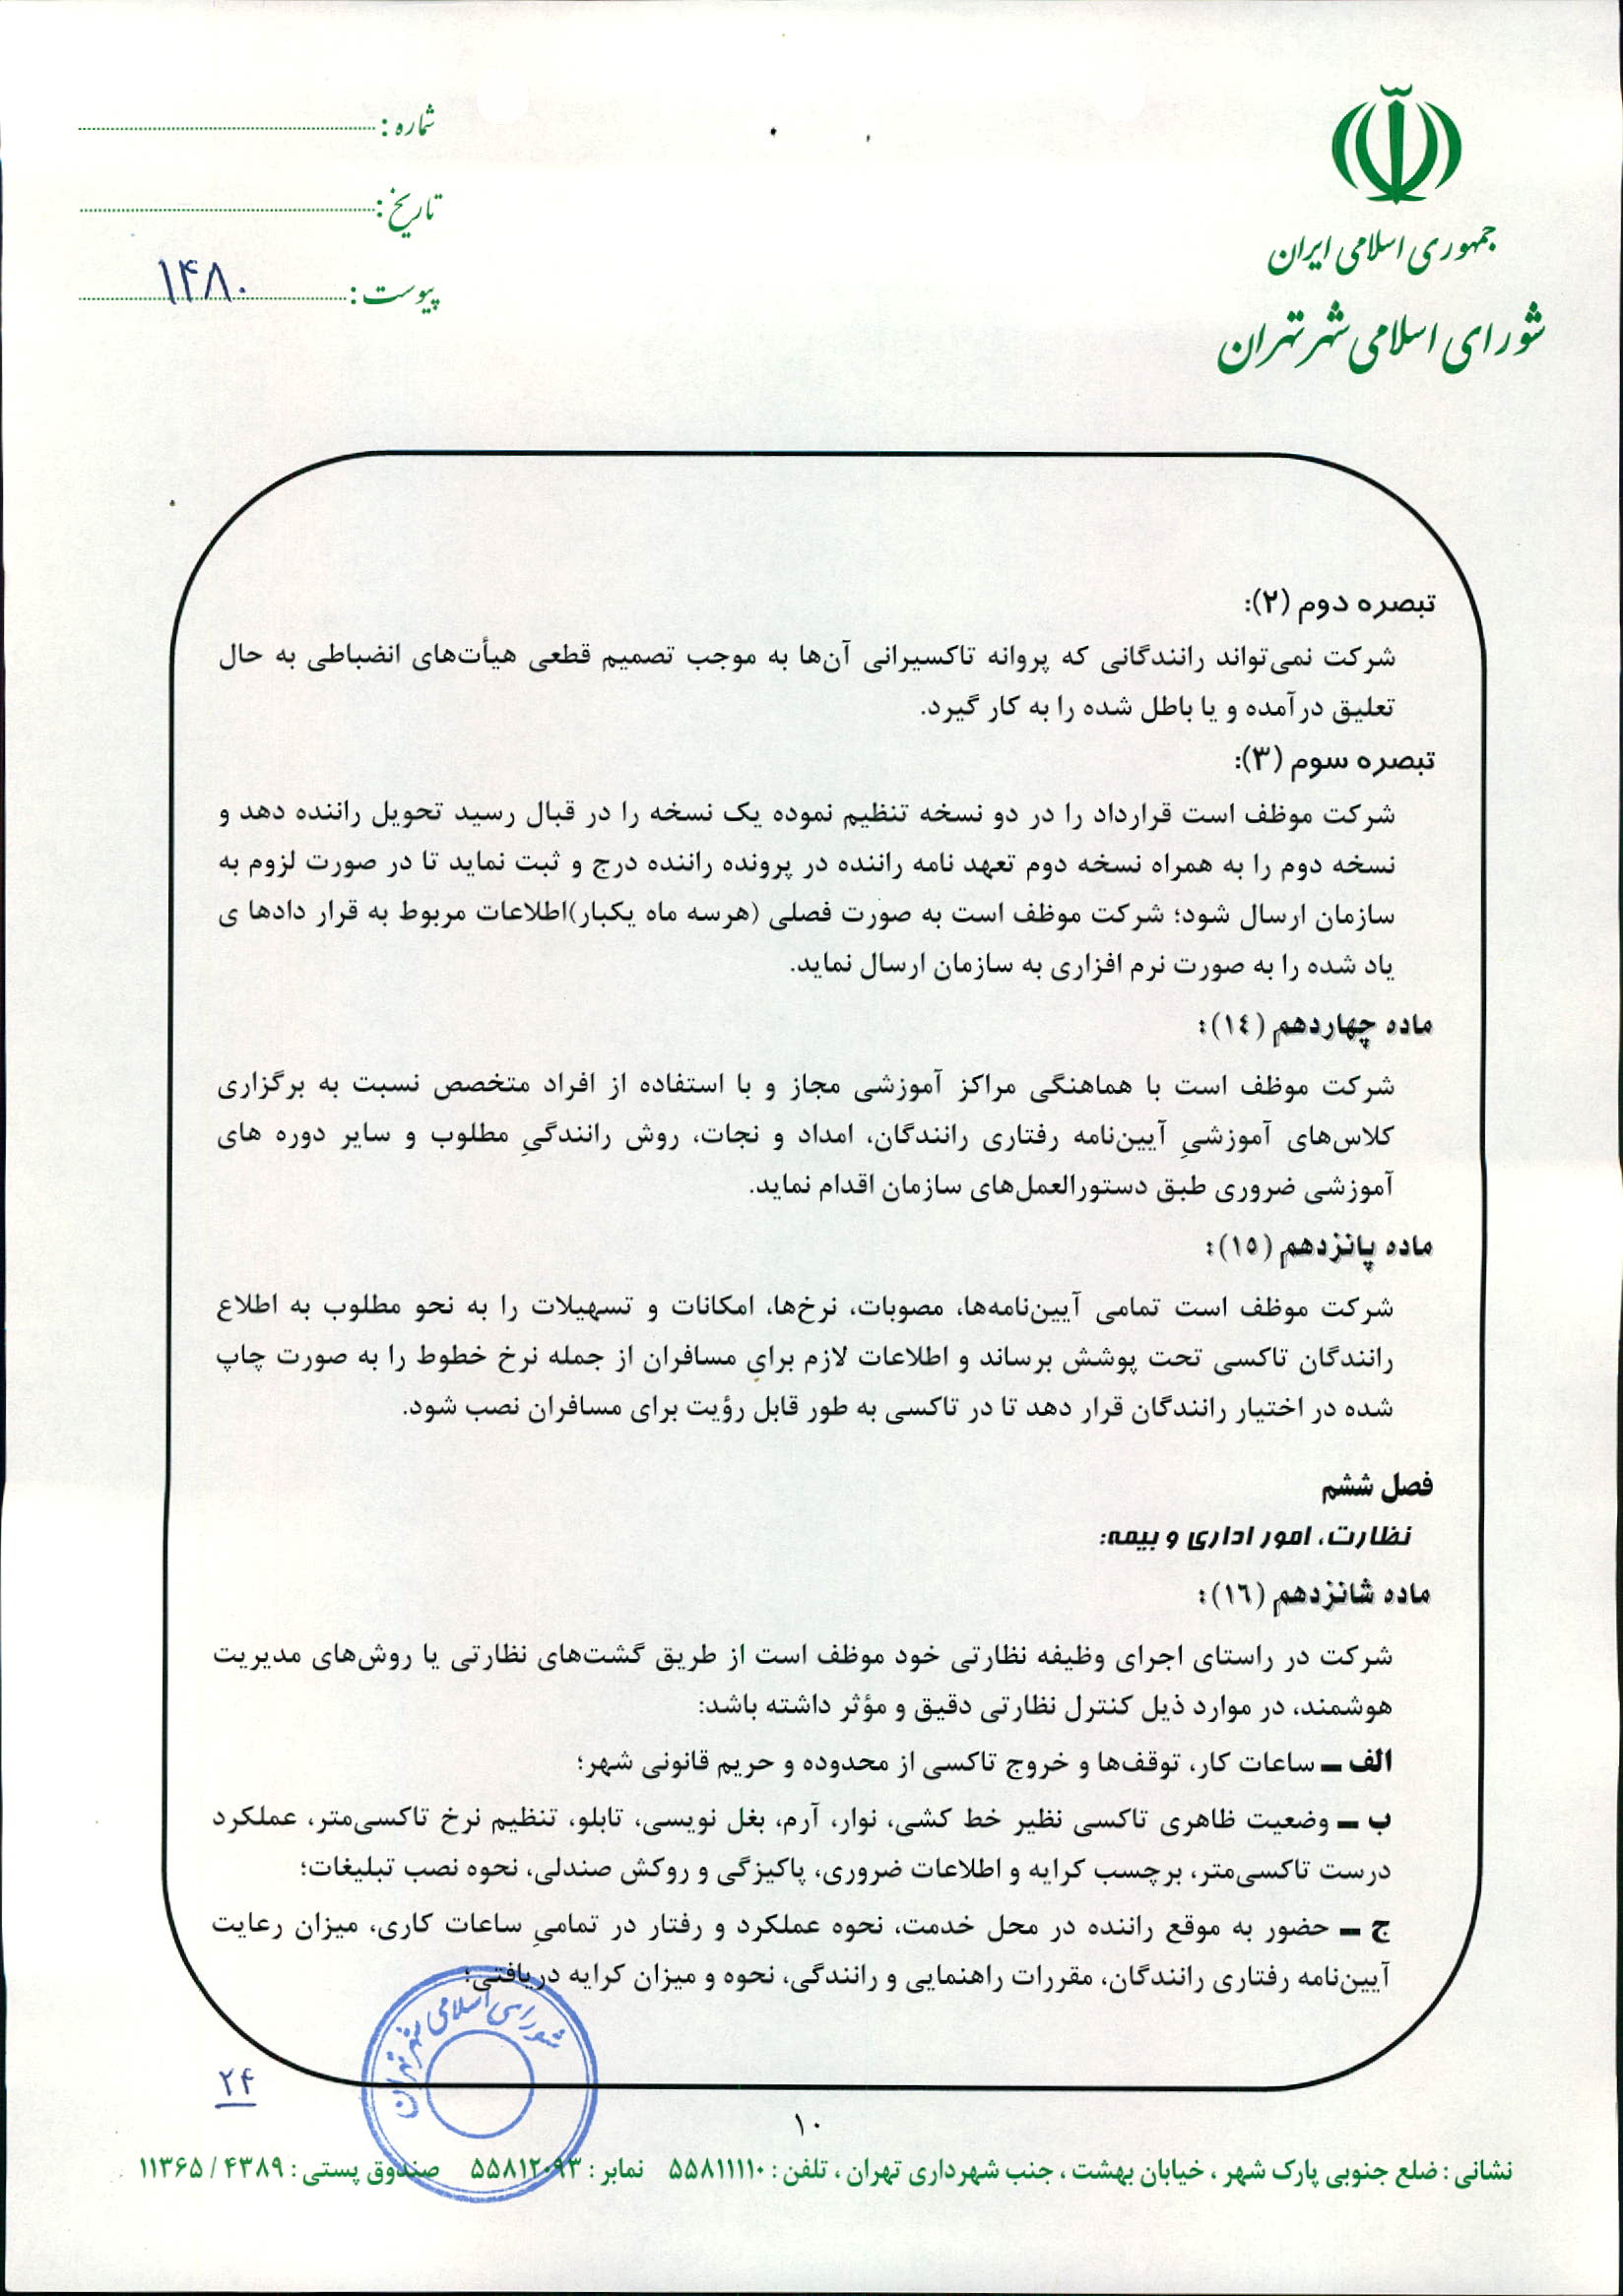 جمهوری اسلامی ایران
شورای اسلامی شهر تهران
شماره :
تاریخ :
پیوست : ۱۴۸۰
تبصره دوم (۲):
شرکت نمی‌تواند رانندگانی که پروانه تاکسیرانی آن‌ها به موجب تصمیم قطعی هیأت‌های انضباطی به حال
تعلیق درآمده و یا باطل شده را به کار گیرد.
تبصره سوم (۳):
شرکت موظف است قرارداد را در دو نسخه تنظیم نموده یک نسخه را در قبال رسید تحویل راننده دهد و
نسخه دوم را به همراه نسخه دوم تعهد نامه راننده در پرونده راننده درج و ثبت نماید تا در صورت لزوم به
سازمان ارسال شود؛ شرکت موظف است به صورت فصلی (هرسه ماه یکبار)اطلاعات مربوط به قرار دادها ی
یاد شده را به صورت نرم افزاری به سازمان ارسال نماید.
ماده چهاردهم (١٤):
شرکت موظف است با هماهنگی مراکز آموزشی مجاز و با استفاده از افراد متخصص نسبت به برگزاری
کلاس‌های آموزشیِ آیین‌نامه رفتاری رانندگان، امداد و نجات، روش رانندگیِ مطلوب و سایر دوره های
آموزشی ضروری طبق دستورالعمل‌های سازمان اقدام نماید.
ماده پانزدهم (١٥):
شرکت موظف است تمامی آیین‌نامه‌ها، مصوبات، نرخ‌ها، امکانات و تسهیلات را به نحو مطلوب به اطلاع
رانندگان تاکسی تحت پوشش برساند و اطلاعات لازم برای مسافران از جمله نرخ خطوط را به صورت چاپ
شده در اختیار رانندگان قرار دهد تا در تاکسی به طور قابل رؤیت برای مسافران نصب شود.
فصل ششم
نظارت، امور اداری و بیمه:
ماده شانزدهم (١٦):
شرکت در راستای اجرای وظیفه نظارتی خود موظف است از طریق گشت‌های نظارتی یا روش‌های مدیریت
هوشمند، در موارد ذیل کنترل نظارتی دقیق و مؤثر داشته باشد:
الف ـ ساعات کار، توقف‌ها و خروج تاکسی از محدوده و حریم قانونی شهر؛
ب ـ وضعیت ظاهری تاکسی نظیر خط کشی، نوار، آرم، بغل نویسی، تابلو، تنظیم نرخ تاکسی‌متر، عملکرد
درست تاکسی‌متر، برچسب کرایه و اطلاعات ضروری، پاکیزگی و روکش صندلی، نحوه نصب تبلیغات؛
ج ـ حضور به موقع راننده در محل خدمت، نحوه عملکرد و رفتار در تمامیِ ساعات کاری، میزان رعایت
آیین‌نامه رفتاری رانندگان، مقررات راهنمایی و رانندگی، نحوه و میزان کرایه دریافتی؛
شورای اسلامی شهر تهران
۲۴
۱۰
نشانی : ضلع جنوبی پارک شهر ، خیابان بهشت ، جنب شهرداری تهران ، تلفن : ۵۵۸۱۱۱۱۰ نمابر : ۵۵۸۱۲۰۹۳ صندوق پستی : ۴۳۸۹ / ۱۱۳۶۵